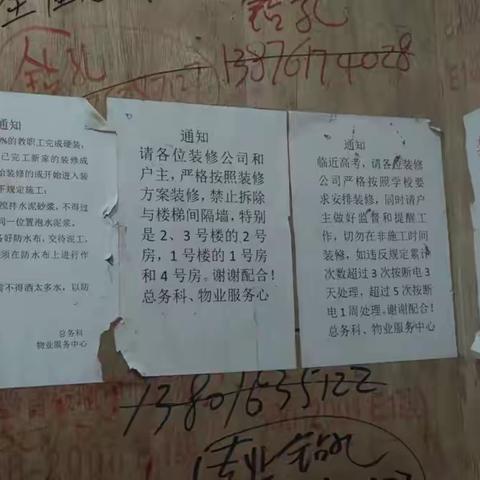 钻孔
钻孔
13876174028
通知
%的教职工完成硬装,
己完工新家的装修成
装修的或开始进入装
下规定施工:
搅拌水泥砂浆,不得过
同一位置泡水泥浆。
备好防水布,交待泥工,
须在防水布上进行作
不得洒太多水,以防
总务科
物业服务中心
通知
请各位装修公司和
户主,严格按照装修
方案装修,禁止拆除
与楼梯间隔墙,特别
是2、3号楼的2号
房,1号楼的1号房
和4号房。谢谢配合!
总务科、物业服务心
通知
临近高考,请各位装修
公司严格按照学校要
求安排装修,同时请户
主做好监督和提醒工
作,切勿在非施工时间
装修,如违反规定累计
次数超过3次按断电3
天处理,超过5次按断
电1周处理。谢谢配合!
总务科、物业服务中心
13801635122
专业钻孔